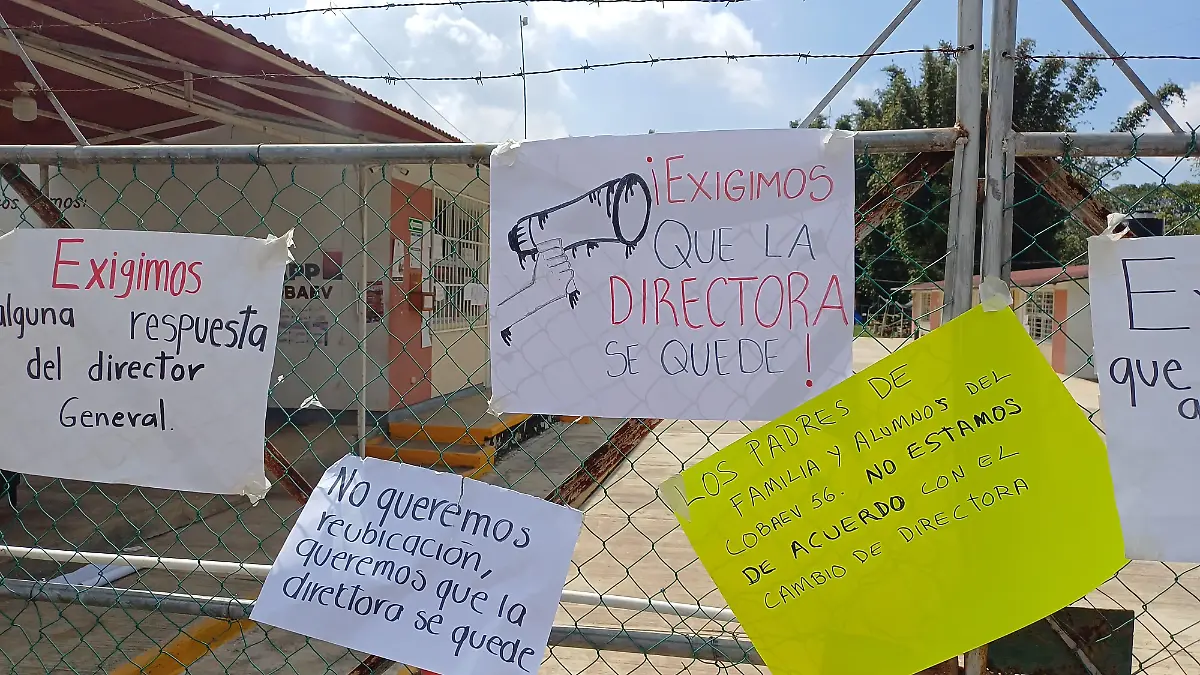 Exigimos
alguna respuesta
del director
General.
¡EXIGIMOS
QUE LA
DIRECTORA
SE QUEDE!
No queremos
reubicación,
queremos que la
directora se quede
LOS PADRES DE
FAMILIA Y ALUMNOS DEL
COBAEV 56. NO ESTAMOS
DE ACUERDO CON EL
CAMBIO DE DIRECTORA
E
que
a
PP
BAEV